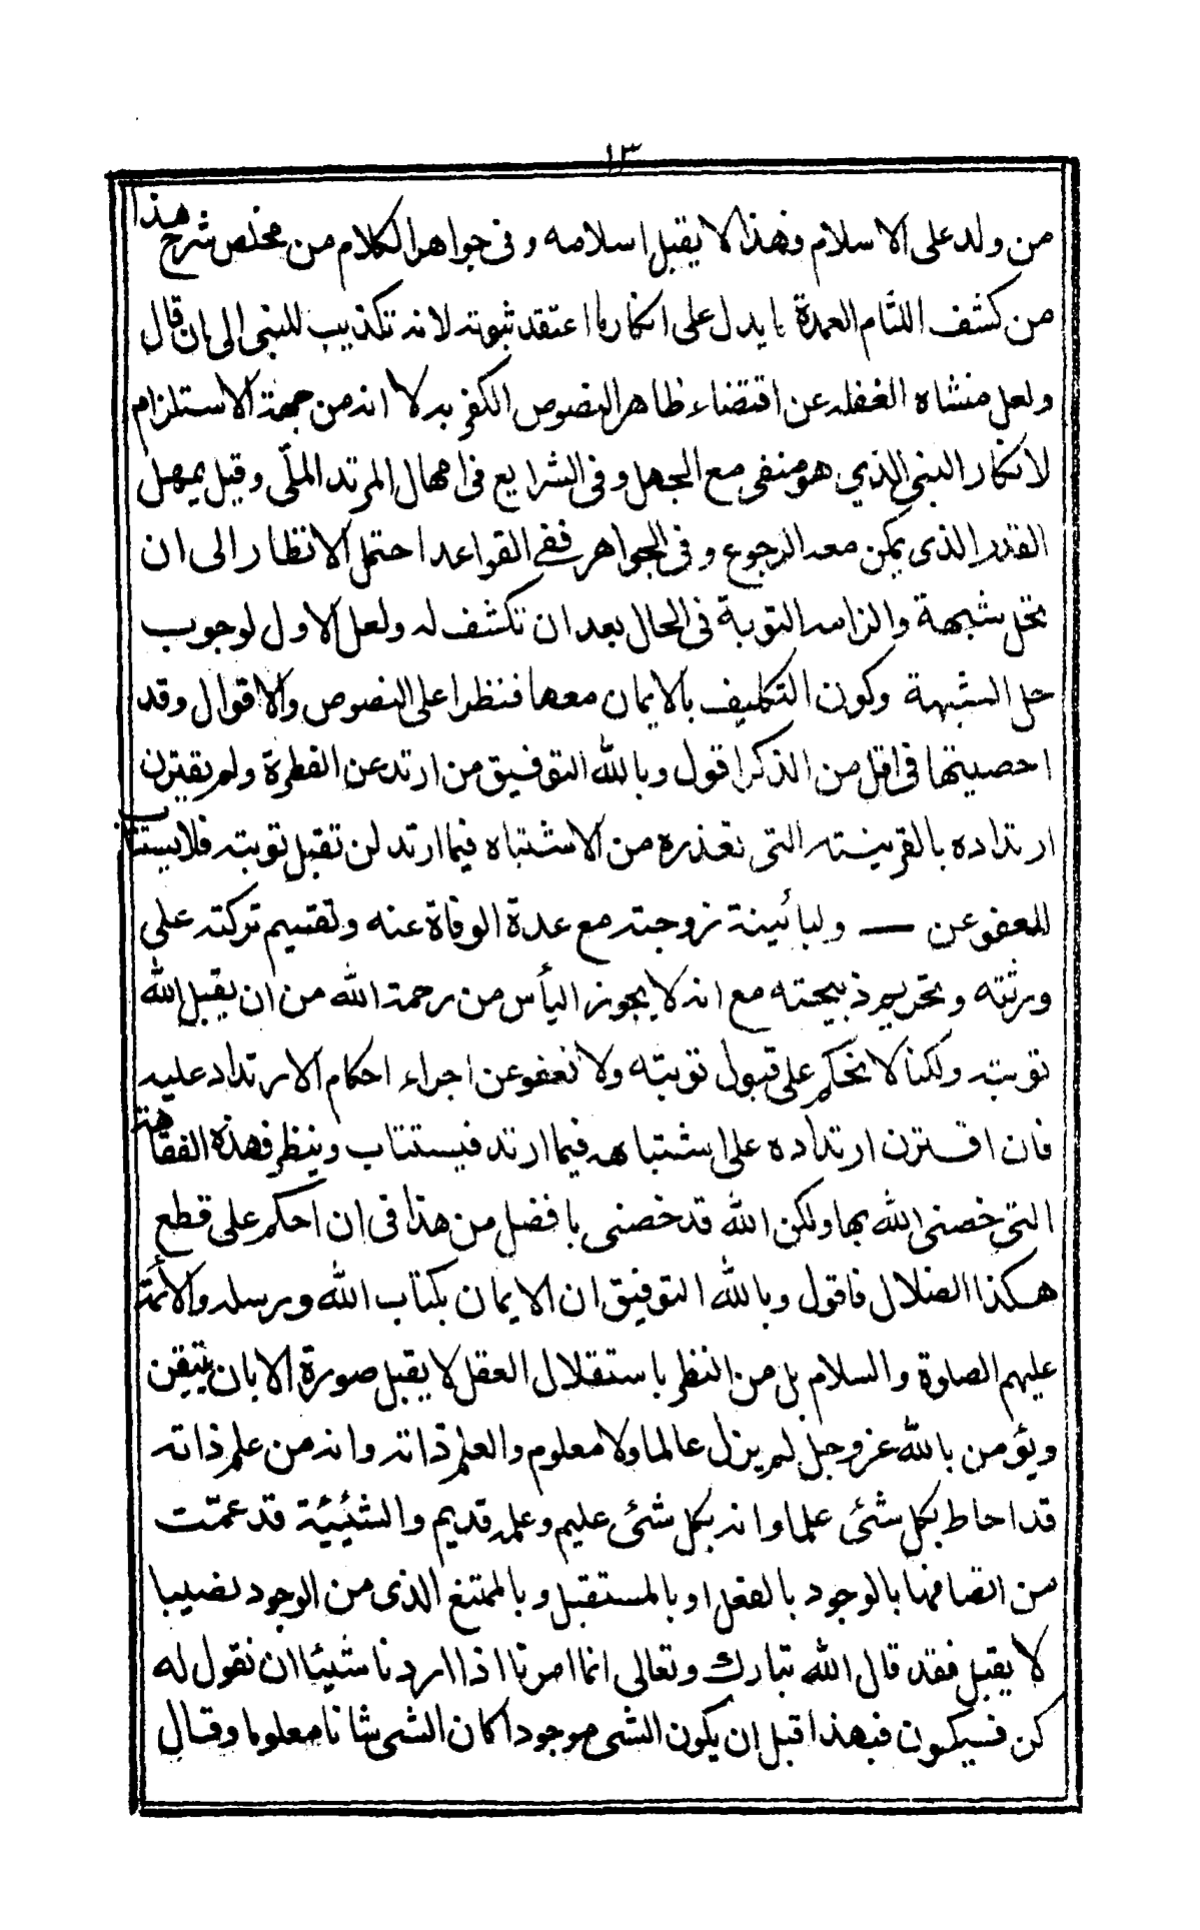 ١٣
من ولد على الاسلام وفهذا لا يقبل اسلامه وفى جواهر الكلام من مخلص شرح هذا
من كشف اللثام العمدة ما يدل على انكار ما اعتقد ثبوته لانه تكذيب للنبى الى ان قال
ولعل منشاه الغفله عن اقتضاء ظاهر النصوص الكفر به لا انه من جهة الاستلزام
لانكار النبى الذي هو منفى مع الجهل وفى الشرايع فى امهال المرتد الملّى وقيل يمهل
القدر الذى يمكن معه الرجوع وفى الجواهر ففى القواعد احتمل الانظار الى ان
تحل شبهة والزامه التوبة فى الحال بعد ان تكشف له ولعل الاول لوجوب
حل الشبهة وكون التكليف بالايمان معها فنظرا على النصوص والاقوال وقد
احصيتها فى اقل من الذكر اقول وبالله التوفيق من ارتد عن الفطرة ولم يقترن
ارتداده بالقرينته التى تعذره من الاشتباه فيما ارتد لن تقبل توبته فلا يستتاب
للعفو عن — ولبائينة زوجته مع عدة الوفاة عنه وتقسيم تركته على
ورثته وتحريم ذبيحته مع انه لا يجوز اليأس من رحمة الله من ان يقبل الله
توبته ولكنا لا نحكم على قبول توبته ولا نعفو عن اجراء احكام الارتداد عليه
فان اقترن ارتداده على اشتباهه فيما ارتد فيستتاب وينظر فهذه الفقاهة
التى خصنى الله بها ولكن الله قد خصنى بافضل من هذا فى ان احكم على قطع
هكذا الضلال فاقول وبالله التوفيق ان الايمان بكتاب الله ورسله والأئمة
عليهم الصلوة والسلام بل من النظر باستقلال العقل لا يقبل صورة الا بان يتيقن
ويؤمن بالله عز وجل لم يزل عالما ولا معلوم والعلم ذاته وانه من علم ذاته
قد احاط بكل شئى علما وانه بكل شئى عليم وعلمه قديم والشئيئية قد عمّت
من اتصافها بالوجود بالفعل او بالمستقبل وبالممتنع الذى من الوجود نصيبا
لا يقبل فقد قال الله تبارك وتعالى انما امرنا اذا اردنا شيئا ان نقول له
كن فسيكون فبهذا قبل ان يكون الشى موجودا كان الشى شانا معلوما وقال